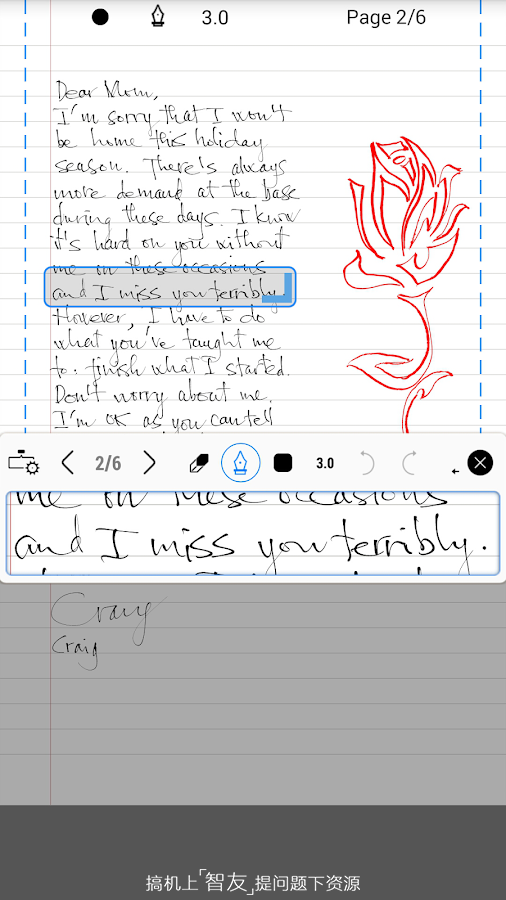 3.0
Page 2/6
Dear Mom,
I'm sorry that I won't
be home this holiday
season. There's always
more demand at the base
during these days. I know
it's hard on you without
me in these occasions
and I miss you terribly.
However, I have to do
what you've taught me
to. finish what I started.
Don't worry about me.
I'm OK as you can tell
2/6
3.0
me in these occasions
and I miss you terribly.
Craig
Craig
搞机上「智友」提问题下资源